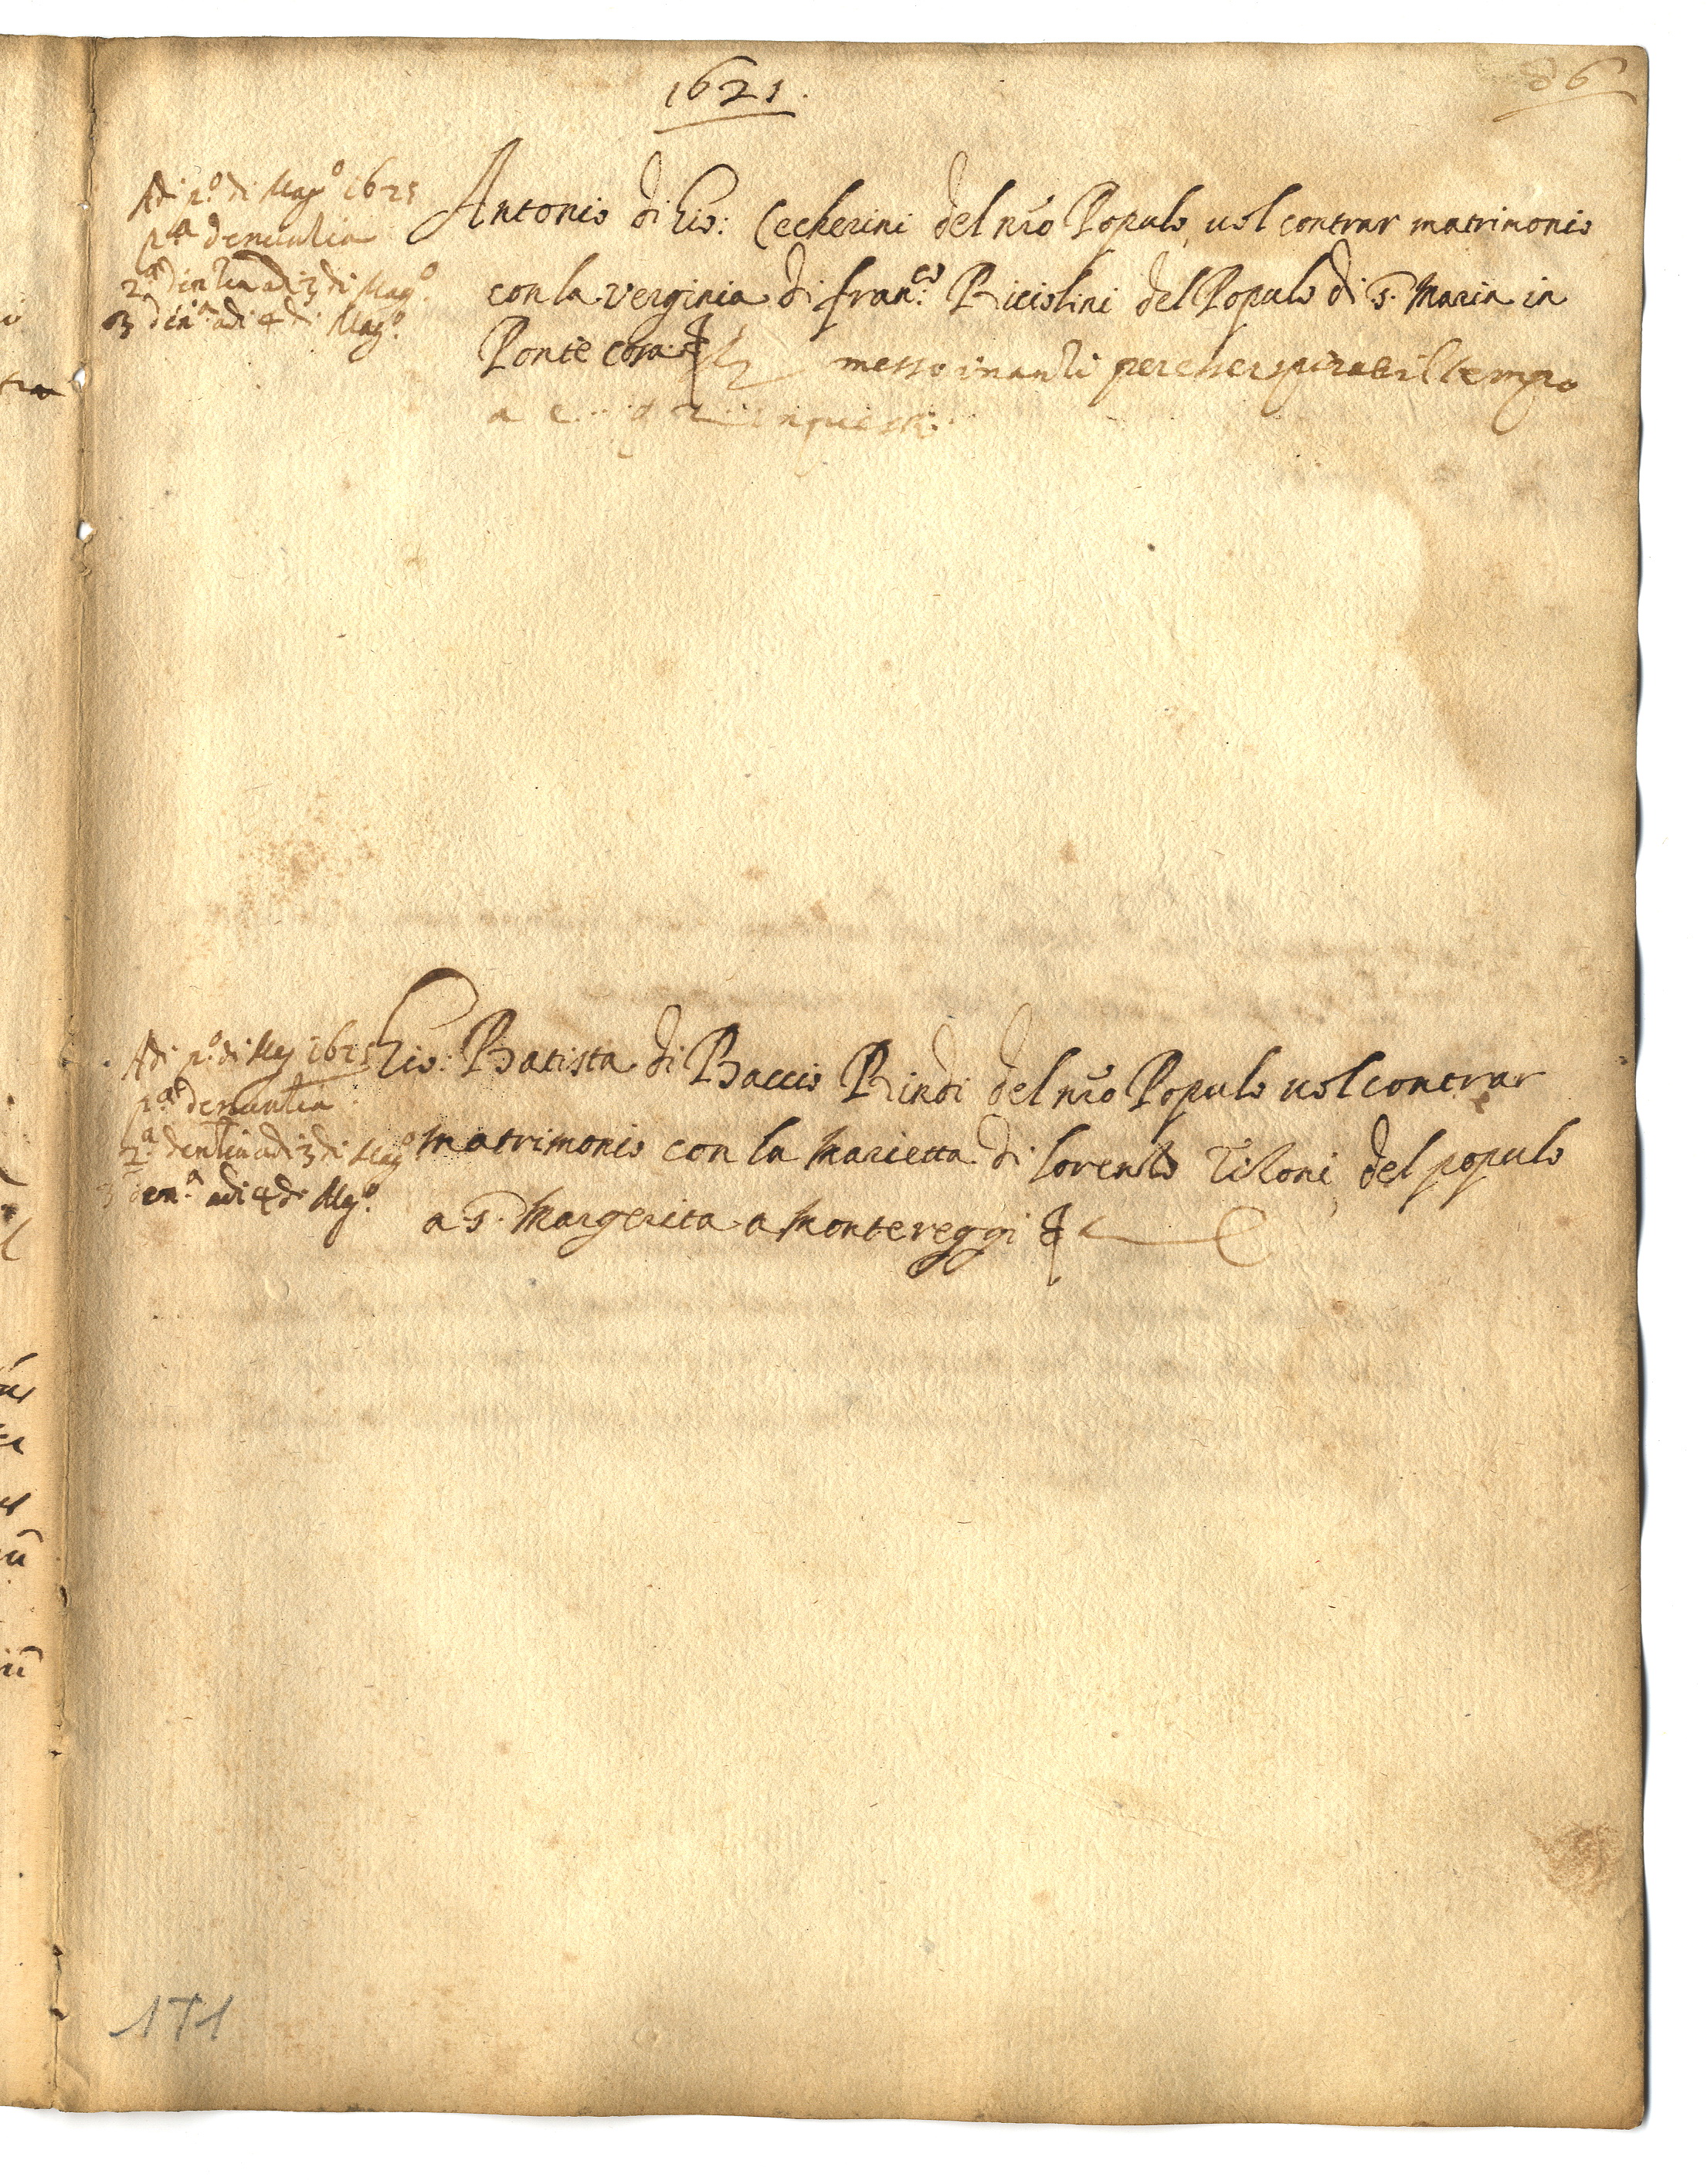 1621.
86
Adi po. di Mago 1621
pa. denuntia
2a. dentia adi 3 di Mago.
3 dena. adi 4 di Mago.
Antonio di Gio: Cecherini del nro Populo, uol contrar matrimonio
con la verginia di franco: Ricciolini del Populo di S. Maria in
Ponte
messo inanti per esser spirato il tempo
Adi po. di Mag 1621
pa. denuntia
2a. dentia adi 3 di Mago
3 dena. adi 4 di Mago.
Gio: Batista di Baccio Bindi del nro Populo uol contrar
matrimonio con la Marietta di Lorenzo Tiloni del populo
a S. Margerita a Montereggi
171